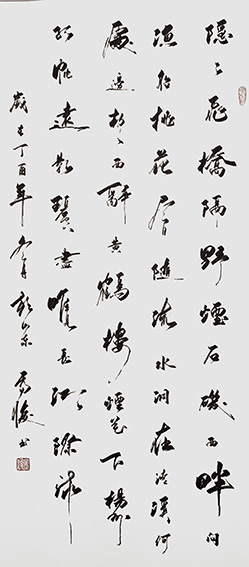 隱隱飛橋隔野煙石磯西畔問
漁船桃花尽日隨流水洞在清溪何
處邊故人西辭黃鶴樓煙花三月下揚州
孤帆遠影碧空盡唯見長江天際流
歲在丁酉年冬月書